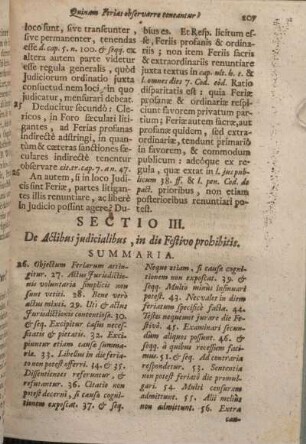 Quinam Ferias observarre teneantur?
207
loco sunt, sive transeunter,
sive permanenter, tenendas
esse d. cap. 5. n. 100. & seqq. ex
altera autem parte videtur
esse regula generalis, quòd
Judiciorum ordinatio juxta
consuetud nem loci, in quo
judicatur, mensurari debeat.
25 Deducitur secundò: Cle-
ricos, in Foro sæculari liti-
gantes, ad Ferias profanas
indirectè adstringi, in quan-
tùm & cæteras sanctiones sæ-
culares indirectè tenentur
observare cit. tr. cap. 7. an. 47.
26 An autem, si in loco Judi-
cis sint Feriæ, Partes litigan-
tes illis renuntiare, ac liberè
in Judicio possint agere? Du-
bius es. Et Resp. licitum es-
se, Feriis profanis & ordina-
riis; non item Feriis sacris
& extraordinariis renuntiare
juxta textus in cap. ult. h. t. &
l. omnes dies 7. Cod. eod. Ratio
disparitatis est: quia Feriæ
profanæ & ordinariæ respi-
ciunt favorem privatum par-
tium; Feriæ autem sacræ, aut
profanæ quidem, sed extra-
ordinariæ, tendunt primariò
in favorem, & commodum
publicum: adeóque ex re-
gula, quæ extat in l. jus pub-
licum 38. ff. & l. pen. Cod. de
pact. prioribus, non etiam
posterioribus renuntiari po-
test.
SECTIO III.
De Actibus judicialibus, in die Festivo prohibitis.
SUMMARIA.
26. Objectum Feriarum attin-
gitur. 27. Actus Jurisdictio-
nis voluntaria simplicis non
sunt vetiti. 28. Bene verò
actus mixti. 29. Uti & actus
Jurisdictionis contentiosæ. 30.
& seq. Excipitur casus necessi-
tatis & pietatis. 32. Exci-
piuntur etiam causa summa-
ria. 33. Libellus in die feria-
to non potest offerri. 34. & 35.
Dissentientes referuntur, &
refutantur. 36. Citatio non
potest decerni, si causa cogni-
tionem exposcat. 37. & seq.
Neque etiam, si causa cogni-
tionem non exposcat. 39. &
seqq. Multò minùs insinuari
potest. 43. Nec valet in diem
feriatum specificè facta. 44.
Testes nequeunt jurare die Fe-
stivo. 45. Examinari secun-
dùm aliquos possunt. 46. &
seqq. à quibus recessum fasti-
mus. 51. & seq. Ad contraria
respondetur. 53. Sententia
non potest feriari die promul-
gari. 54. Multi censuram
admittunt. 55. Alii meliùs
non admittunt. 56. Extra